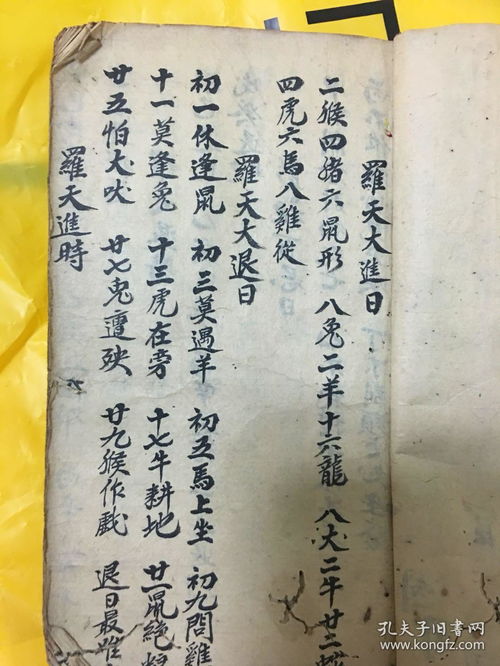 羅天大進日
二猴四猪六鼠形 八兔二羊十六龍 八犬二牛廿二
四虎六馬八雞從
羅天大退日
初一休逢鼠 初三莫遇羊 初五馬上坐 初九問雞
十一莫逢兔 十三虎在旁 十七牛耕地 廿一鼠絶
廿五怕犬吠 廿七兔遭殃 廿九猴作戲 退日最
羅天進時
孔夫子旧书网
www.kongfz.com